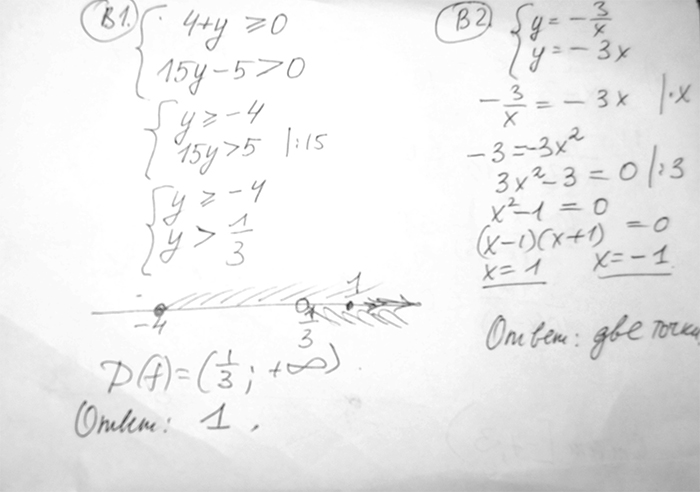 В1. { 4+y ≥ 0
15y-5>0
{ y ≥ -4
15y>5 |:15
{ y ≥ -4
y > 1/3
-4 1/3 1
D(f)=(1/3; +∞)
Ответ: 1.
В2 { y = -3/x
y = -3x
-3/x = -3x |·x
-3=-3x²
3x²-3 = 0 |:3
x²-1 = 0
(x-1)(x+1) = 0
x=1 x=-1
Ответ: две точки